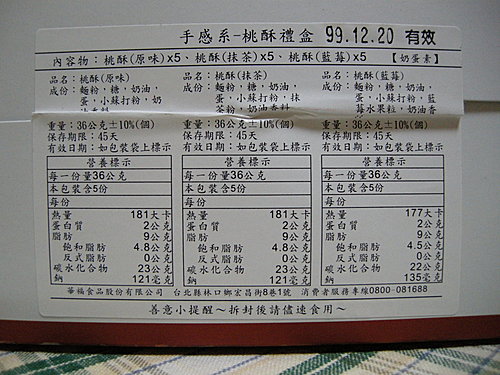 手感系-桃酥禮盒 99.12.20 有效
內容物：桃酥(原味)x5、桃酥(抹茶)x5、桃酥(藍莓)x5 【奶蛋素】
品名：桃酥(原味) 品名：桃酥(抹茶) 品名：桃酥(藍莓)
成份：麵粉，糖，奶油， 成份：麵粉，糖，奶油， 成份：麵粉，糖，奶油，
蛋，小蘇打粉，奶 蛋，小蘇打粉，抹 蛋，小蘇打粉，藍
茶粉，奶油香料 莓水果粒，奶油香
重量：36公克±10%(個) 重量：36公克±10%(個) 重量：36公克±10%(個)
保存期限：45天 保存期限：45天 保存期限：45天
有效日期：如包裝袋上標示 有效日期：如包裝袋上標示 有效日期：如包裝袋上標示
營養標示 營養標示 營養標示
每一份量36公克 每一份量36公克 每一份量36公克
本包裝含5份 本包裝含5份 本包裝含5份
每份 每份 每份
熱量 181大卡 熱量 181大卡 熱量 177大卡
蛋白質 2公克 蛋白質 2公克 蛋白質 2公克
脂肪 9公克 脂肪 9公克 脂肪 9公克
飽和脂肪 4.8公克 飽和脂肪 4.8公克 飽和脂肪 4.5公克
反式脂肪 0公克 反式脂肪 0公克 反式脂肪 0公克
碳水化合物 23公克 碳水化合物 23公克 碳水化合物 22公克
鈉 121毫克 鈉 121毫克 鈉 135毫克
華福食品股份有限公司 台北縣林口鄉宏昌街8巷1號 消費者服務專線0800-081688
～善意小提醒～拆封後請儘速食用～